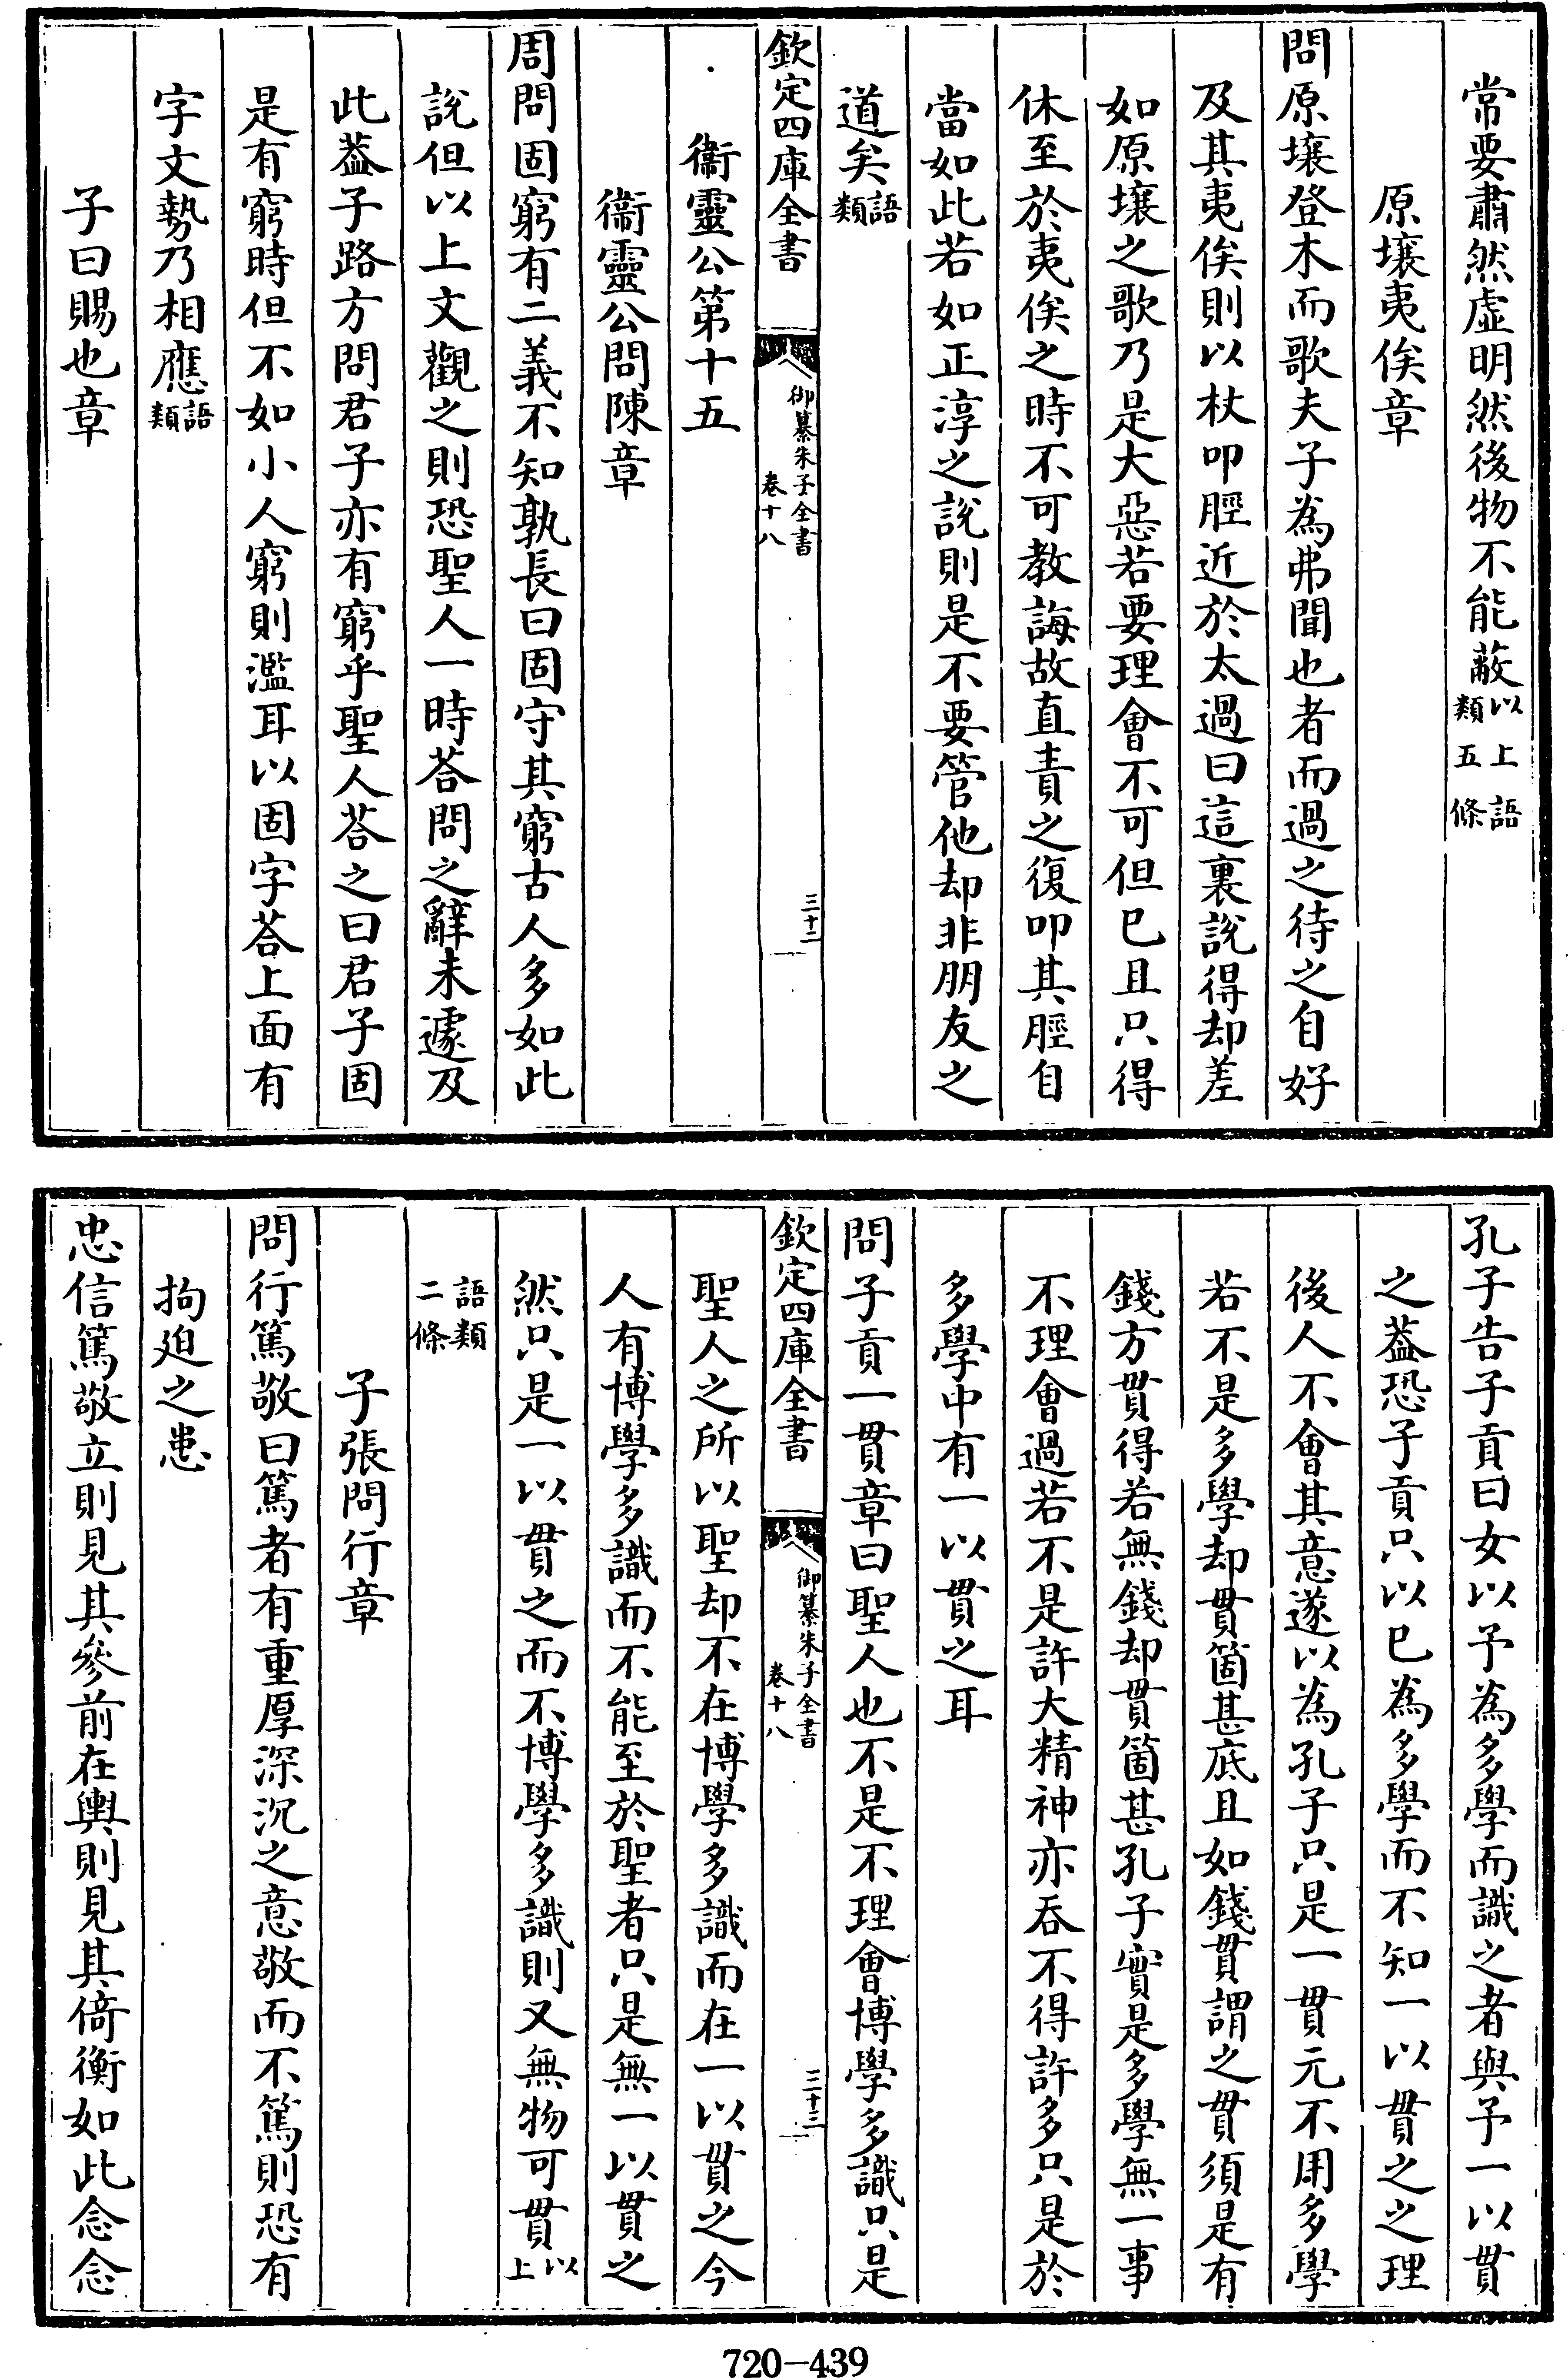 常要肅然虚明然後物不能蔽以上語類五條
原壤夷俟章
問原壤登木而歌夫子為弗聞也者而過之待之自好
及其夷俟則以杖叩脛近於太過曰這裏說得却差
如原壤之歌乃是大惡若要理會不可但已且只得
休至於夷俟之時不可教誨故直責之復叩其脛自
當如此若如正淳之說則是不要管他却非朋友之
道矣語類
欽定四庫全書
御纂朱子全書
卷十八
三十二
衞靈公第十五
衞靈公問陳章
周問固窮有二義不知孰長曰固守其窮古人多如此
說但以上文觀之則恐聖人一時荅問之辭未遽及
此葢子路方問君子亦有窮乎聖人荅之曰君子固
是有窮時但不如小人窮則濫耳以固字荅上面有
字文勢乃相應語類
子曰賜也章
孔子告子貢曰女以予為多學而識之者與予一以貫
之葢恐子貢只以已為多學而不知一以貫之之理
後人不會其意遂以為孔子只是一貫元不用多學
若不是多學却貫箇甚底且如錢貫謂之貫須是有
錢方貫得若無錢却貫箇甚孔子實是多學無一事
不理會過若不是許大精神亦吞不得許多只是於
多學中有一以貫之耳
問子貢一貫章曰聖人也不是不理會博學多識只是
欽定四庫全書
御纂朱子全書
卷十八
三十三
聖人之所以聖却不在博學多識而在一以貫之今
人有博學多識而不能至於聖者只是無一以貫之
然只是一以貫之而不博學多識則又無物可貫以上
語類二條
子張問行章
問行篤敬曰篤者有重厚深沉之意敬而不篤則恐有
拘迫之患
忠信篤敬立則見其參前在輿則見其倚衡如此念念
720-439